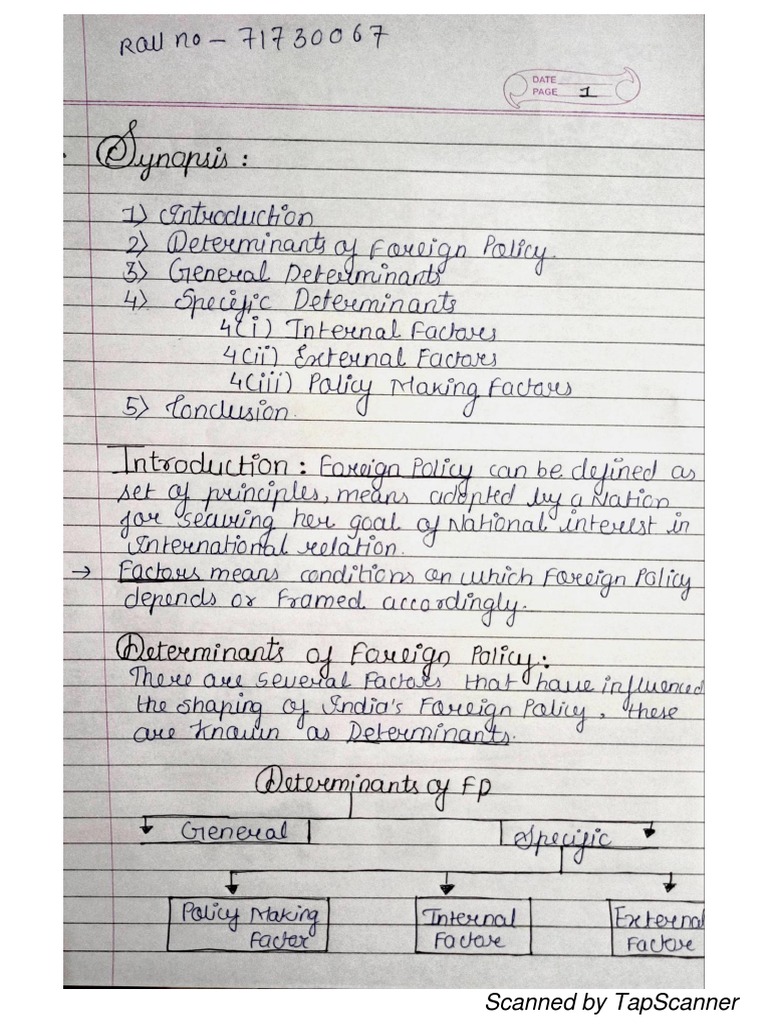 Roll no - 71730067
DATE
PAGE 1
Synopsis :
1) Introduction
2) Determinants of Foreign Policy.
3) General Determinants
4) Specific Determinants
4(i) Internal Factors
4(ii) External Factors
4(iii) Policy Making Factors
5) Conclusion.
Introduction : Foreign Policy can be defined as
set of principles, means adopted by a Nation
for securing her goal of National interest in
International relation.
→ Factors means conditions on which Foreign Policy
depends or Framed accordingly.
Determinants of Foreign Policy :
There are several Factors that have influenced
the shaping of India's Foreign Policy, these
are known as Determinants.
Determinants of FP
General Specific
Policy Making Internal External
Factor Factor Factor
Scanned by TapScanner